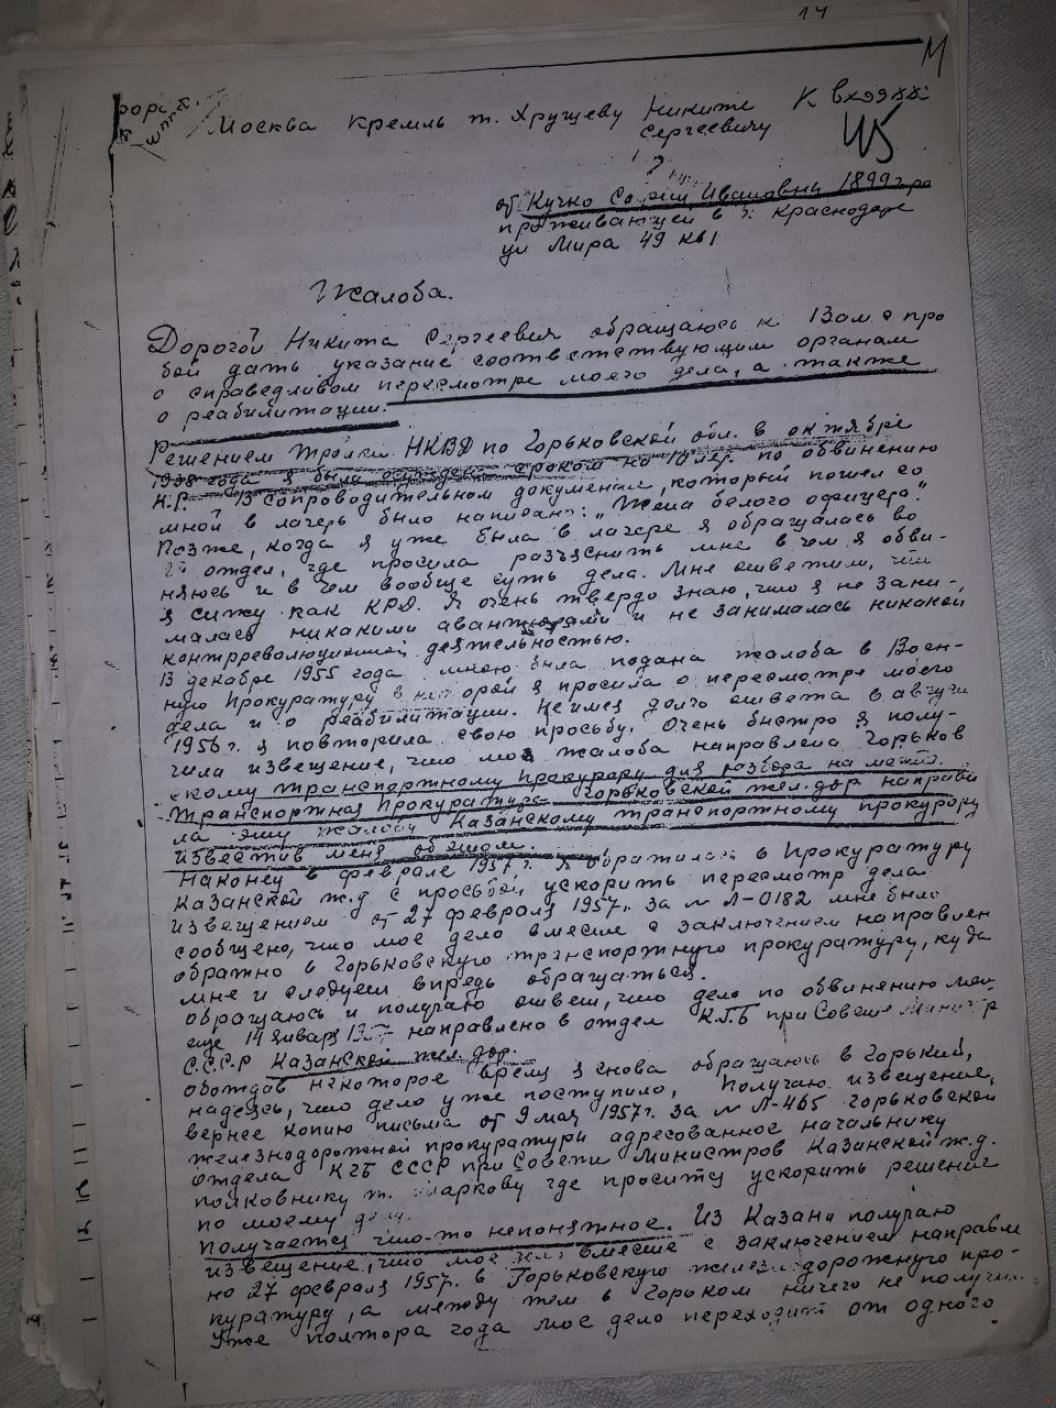 14
М
Москва Кремль т. Хрущеву Никите
Сергеевичу
К вход
от Кучко Ивановны 1899 г.ро
проживающей в г. Краснодаре
ул Мира 49 кв 1
Жалоба.
Дорогой Никита Сергеевич обращаюсь к Вам с про
бой дать указание соответствующим органам
о справедливом пересмотре моего дела, а также
о реабилитации.
Решением Тройки НКВД по Горьковской обл. в октябре
1938 года я была осуждена сроком на 10 лет. по обвинению
К.Р. В сопроводительном документе, который пошел со
мной в лагерь было написано: „Жена белого офицера."
Позже, когда я уже была в лагере я обращалась во
2й отдел, где просила разъяснить мне в чем я обви-
няюсь и в чем вообще суть дела. Мне ответили, что
я сижу как КРД. Я очень твердо знаю, что я не зани-
малась никакими авантюрами и не занималась никакой
контрреволюционной деятельностью.
13 декабря 1955 года мною была подана жалоба в Воен-
ную Прокуратуру в которой я просила о пересмотре моего
дела и о реабилитации. Не имея долго ответа в августе
1956 г. я повторила свою просьбу. Очень быстро я полу-
чила извещение, что моя жалоба направлена Горьков
скому транспортному прокурору для разбора на месте.
Транспортная Прокуратура Горьковской жел. дор направи
ла эту жалобу Казанскому транспортному прокурору
известив меня об этом.
Наконец в феврале 1957 г. я обратилась в Прокуратуру
Казанской ж.д с просьбой ускорить пересмотр дела
извещением от 27 февраля 1957 г. за № Л-0182 мне было
сообщено, что мое дело вместе с заключением направлен
обратно в Горьковскую транспортную прокуратуру, куда
мне и следует впредь обращаться.
обращаюсь и получаю ответ, что дело по обвинению мен
еще 14 января 1957 направлено в отдел К.Г.Б при Совете Министр
С.С.С.Р Казанской жел. дор.
обождав некоторое время я снова обращаюсь в Горький,
надеясь, что дело уже поступило, Получаю извещение,
вернее копию письма от 9 мая 1957 г. за № Л-465 Горьковской
железнодорожной прокуратуры адресованное начальнику
отдела КГБ СССР при Совете Министров Казанской ж.д.
полковнику т. где просится ускорить решение
по моему делу.
Получается что-то непонятное. Из Казани получаю
извещение, что мое дело вместе с заключением направле
но 27 февраля 1957 г. в Горьковскую железнодорожную про-
куратуру, а между тем в Горьком ничего не получ
Уже полтора года мое дело переходит от одного